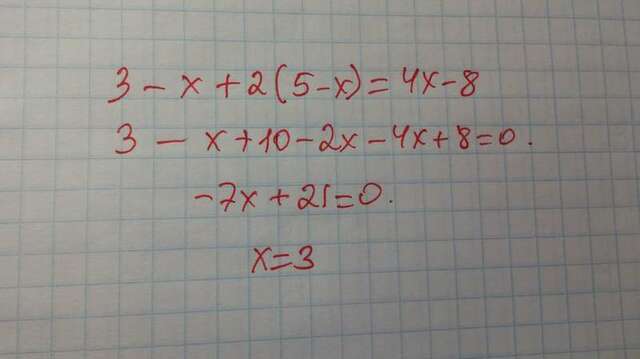 3 - x + 2(5-x) = 4x-8
3 - x+10-2x-4x+8=0.
-7x + 21=0.
x=3